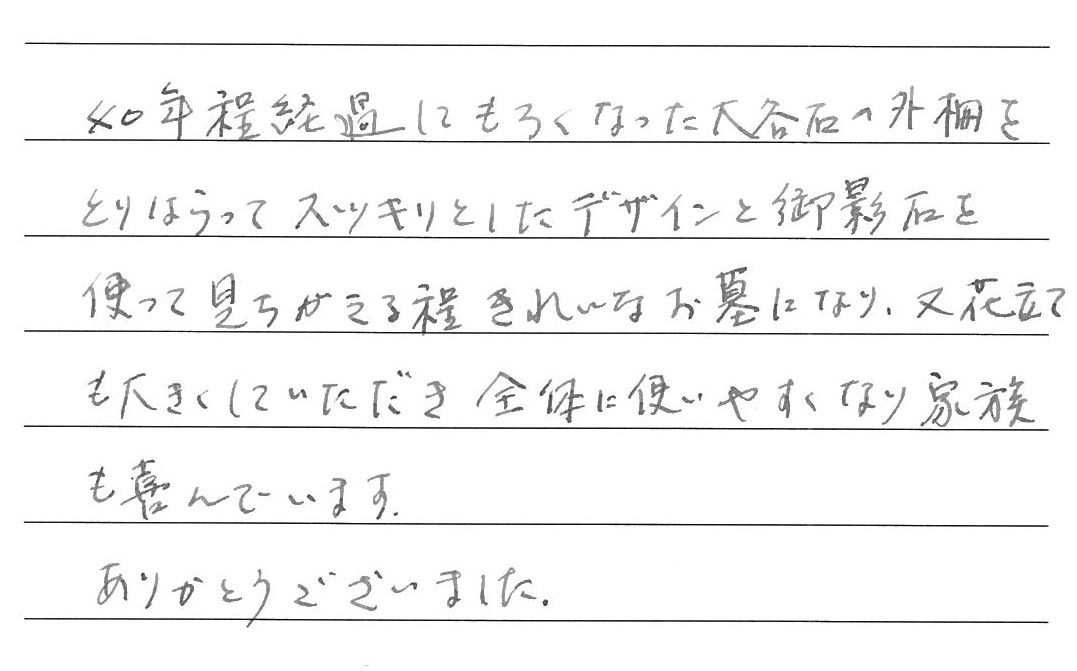 40年程経過しもろくなった大谷石の外柵を
とりはらってスッキリとしたデザインと御影石を
使って見ちがえる程きれいなお墓になり、又花立て
も大きくしていただき全体に使いやすくなり家族
も喜んでいます.
ありがとうございました.